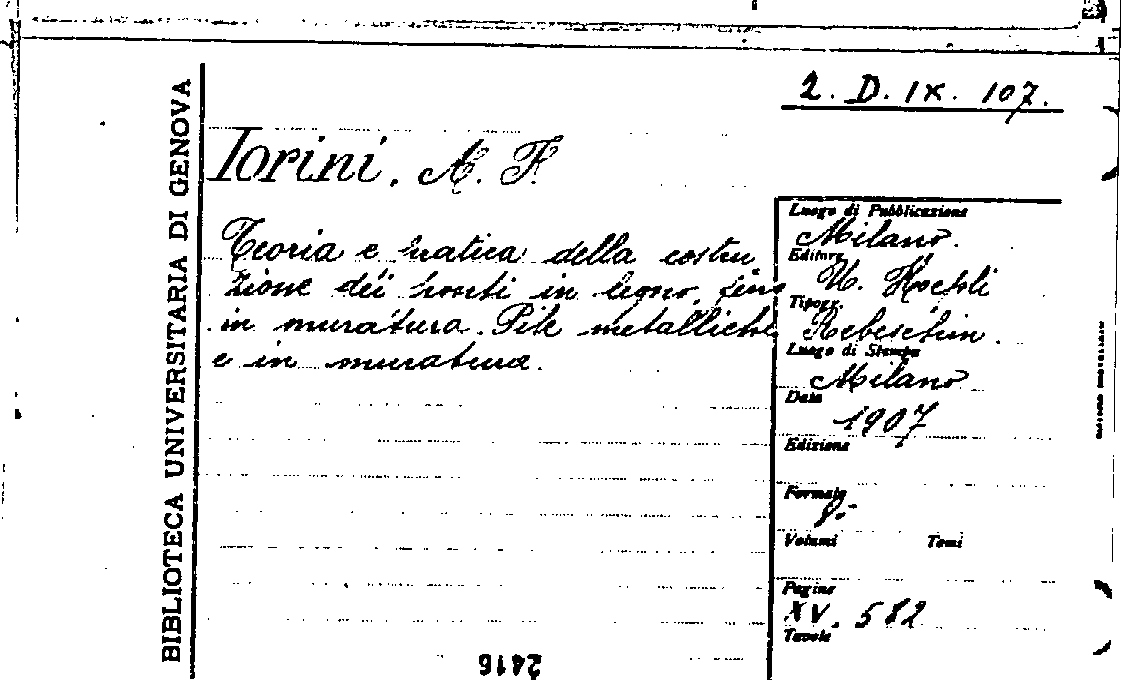 2. D. IX. 107.
BIBLIOTECA UNIVERSITARIA DI GENOVA
Iorini, A. F.
Teoria e pratica della costru
zione dei ponti in legno,
in muratura. Pile metalliche
e in muratura.
Luogo di Pubblicazione
Milano.
Editore
U. Hoepli
Tipogr.
Rebeschin.
Luogo di Stampa
Milano
Data
1907
Edizione
Formato
8°
Volumi Tomi
Pagine
XV. 582
Tavole
2416